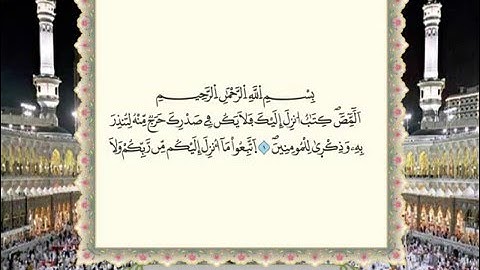 بِسْمِ اِ۬للَّهِ اِ۬لرَّحْمَٰنِ اِ۬لرَّحِيمِ
أَلَٓمِّٓصَٓۖ كِتَٰبٌ ا۟نزِلَ إِلَيْكَ فَلَا يَكُن فِے صَدْرِكَ حَرَجٌ مِّنْهُ لِتُنذِرَ
بِهِۦ وَذِكْر۪ىٰ لِلْمُومِنِينَۖ ١ اَ۪تَّبِعُواْ مَآ أُنزِلَ إِلَيْكُم مِّن رَّبِّكُمْ وَلَا